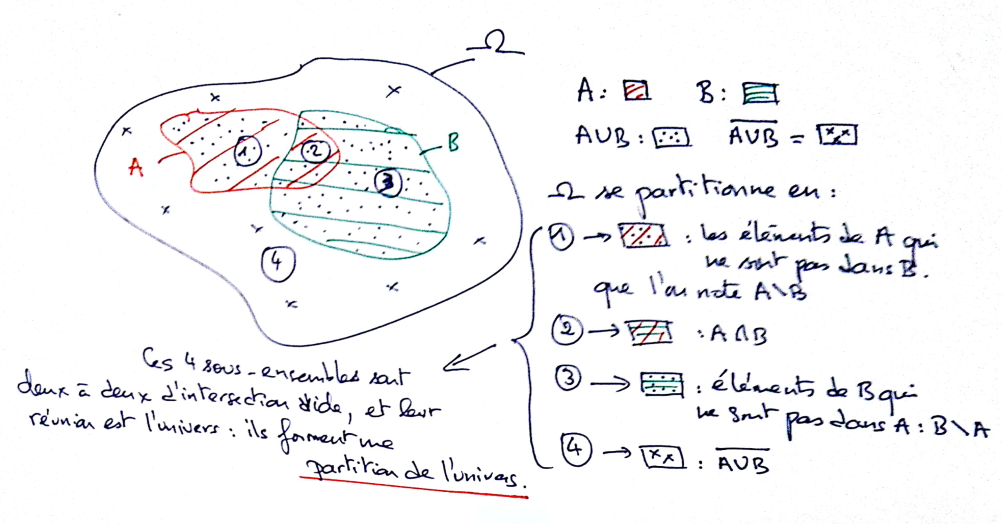 Ω
A
B
1
2
3
4
A : B :
A∪B : \overline{A∪B} =
Ω se partitionne en :
① → : les éléments de A qui
ne sont pas dans B.
que l'on note A\B
② → : A∩B
③ → : éléments de B qui
ne sont pas dans A : B\A
④ → : \overline{A∪B}
Ces 4 sous-ensembles sont
deux à deux d'intersection vide, et leur
réunion est l'univers : ils forment une
partition de l'univers.